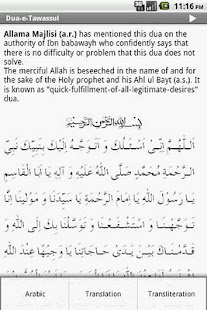 11:16 PM
Dua-e-Tawassul
Allama Majlisi (a.r.) has mentioned this dua on the
authority of Ibn babawayh who confidently says that
there is no difficulty or problem that this dua does not
solve.
The merciful Allah is beseeched in the name of and for
the sake of the Holy prophet and his Ahl ul Bayt (a.s.). It
is known as "quick-fulfillment-of-all-legitimate-desires"
dua.
بِسْمِ اللَّهِ الرَّحْمَٰنِ الرَّحِيمِ
اَللّهُمَّ اِنّى اَسْئَلُكَ وَ اَتَوَجَّهُ اِلَيْكَ بِنَبِيِّكَ نَبِىِّ
الرَّحْمَةِ مُحَمَّدٍ صَلَّى اللّهُ عَلَيْهِ وَ آلِهِ يا اَبَا الْقاسِمِ
يا رَسُولَ اللّهِ يا اِمامَ الرَّحْمَةِ يا سَيِّدَنا وَ مَوْلينا اِنّا
تَوَجَّهْنا وَ اسْتَشْفَعْنا وَ تَوَسَّلْنا بِكَ اِلَى اللّهِ وَ
قَدَّمْناكَ بَيْنَ يَدَىْ حاجاتِنا يا وَجيهًا عِنْدَ اللّهِ
Arabic
Translation
Transliteration